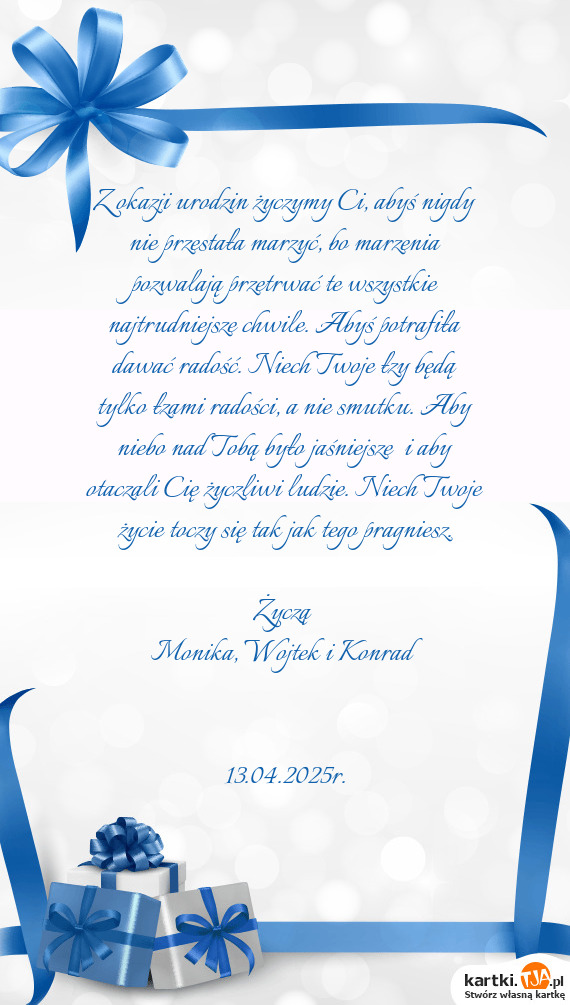 Z okazji urodzin życzymy Ci, abyś nigdy
nie przestała marzyć, bo marzenia
pozwalają przetrwać te wszystkie
najtrudniejsze chwile. Abyś potrafiła
dawać radość. Niech Twoje łzy będą
tylko łzami radości, a nie smutku. Aby
niebo nad Tobą było jaśniejsze i aby
otaczali Cię życzliwi ludzie. Niech Twoje
życie toczy się tak jak tego pragniesz.
Życzą
Monika, Wojtek i Konrad
13.04.2025r.
kartki.TJA.pl
Stwórz własną kartkę